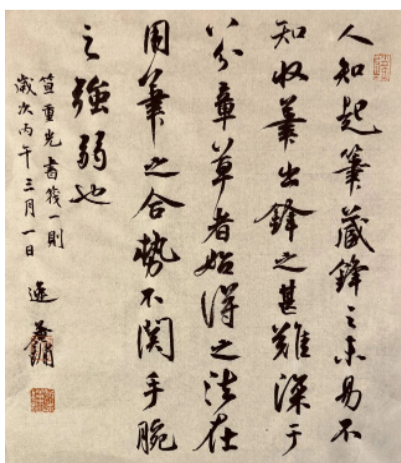 人知起筆藏鋒之未易不
知收筆出鋒之甚難深于
八分章草者始得之法在
用筆之合勢不関手腕
之強弱也
笪重光書筏一則
歲次丙午三月一日